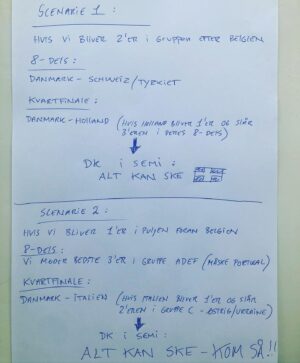 SCENARIE 1 :
HVIS VI BLIVER 2'ER I GRUPPEN EFTER BELGIEN
8-DELS :
DANMARK - SCHWEIZ / TYRKIET
KVARTFINALE :
DANMARK - HOLLAND (HVIS HOLLAND BLIVER 1'ER OG SLÅR
3'EREN I DERES 8-DELS)
DK I SEMI :
ALT KAN SKE
SCENARIE 2 :
HVIS VI BLIVER 1'ER I PULJEN FORAN BELGIEN
8-DELS :
VI MØDER BEDSTE 3'ER I GRUPPE ADEF (MÅSKE PORTUGAL)
KVARTFINALE :
DANMARK - ITALIEN (HVIS ITALIEN BLIVER 1'ER OG SLÅR
2'EREN I GRUPPE C - ØSTRIG/UKRAINE)
DK I SEMI :
ALT KAN SKE - KOM SÅ !!